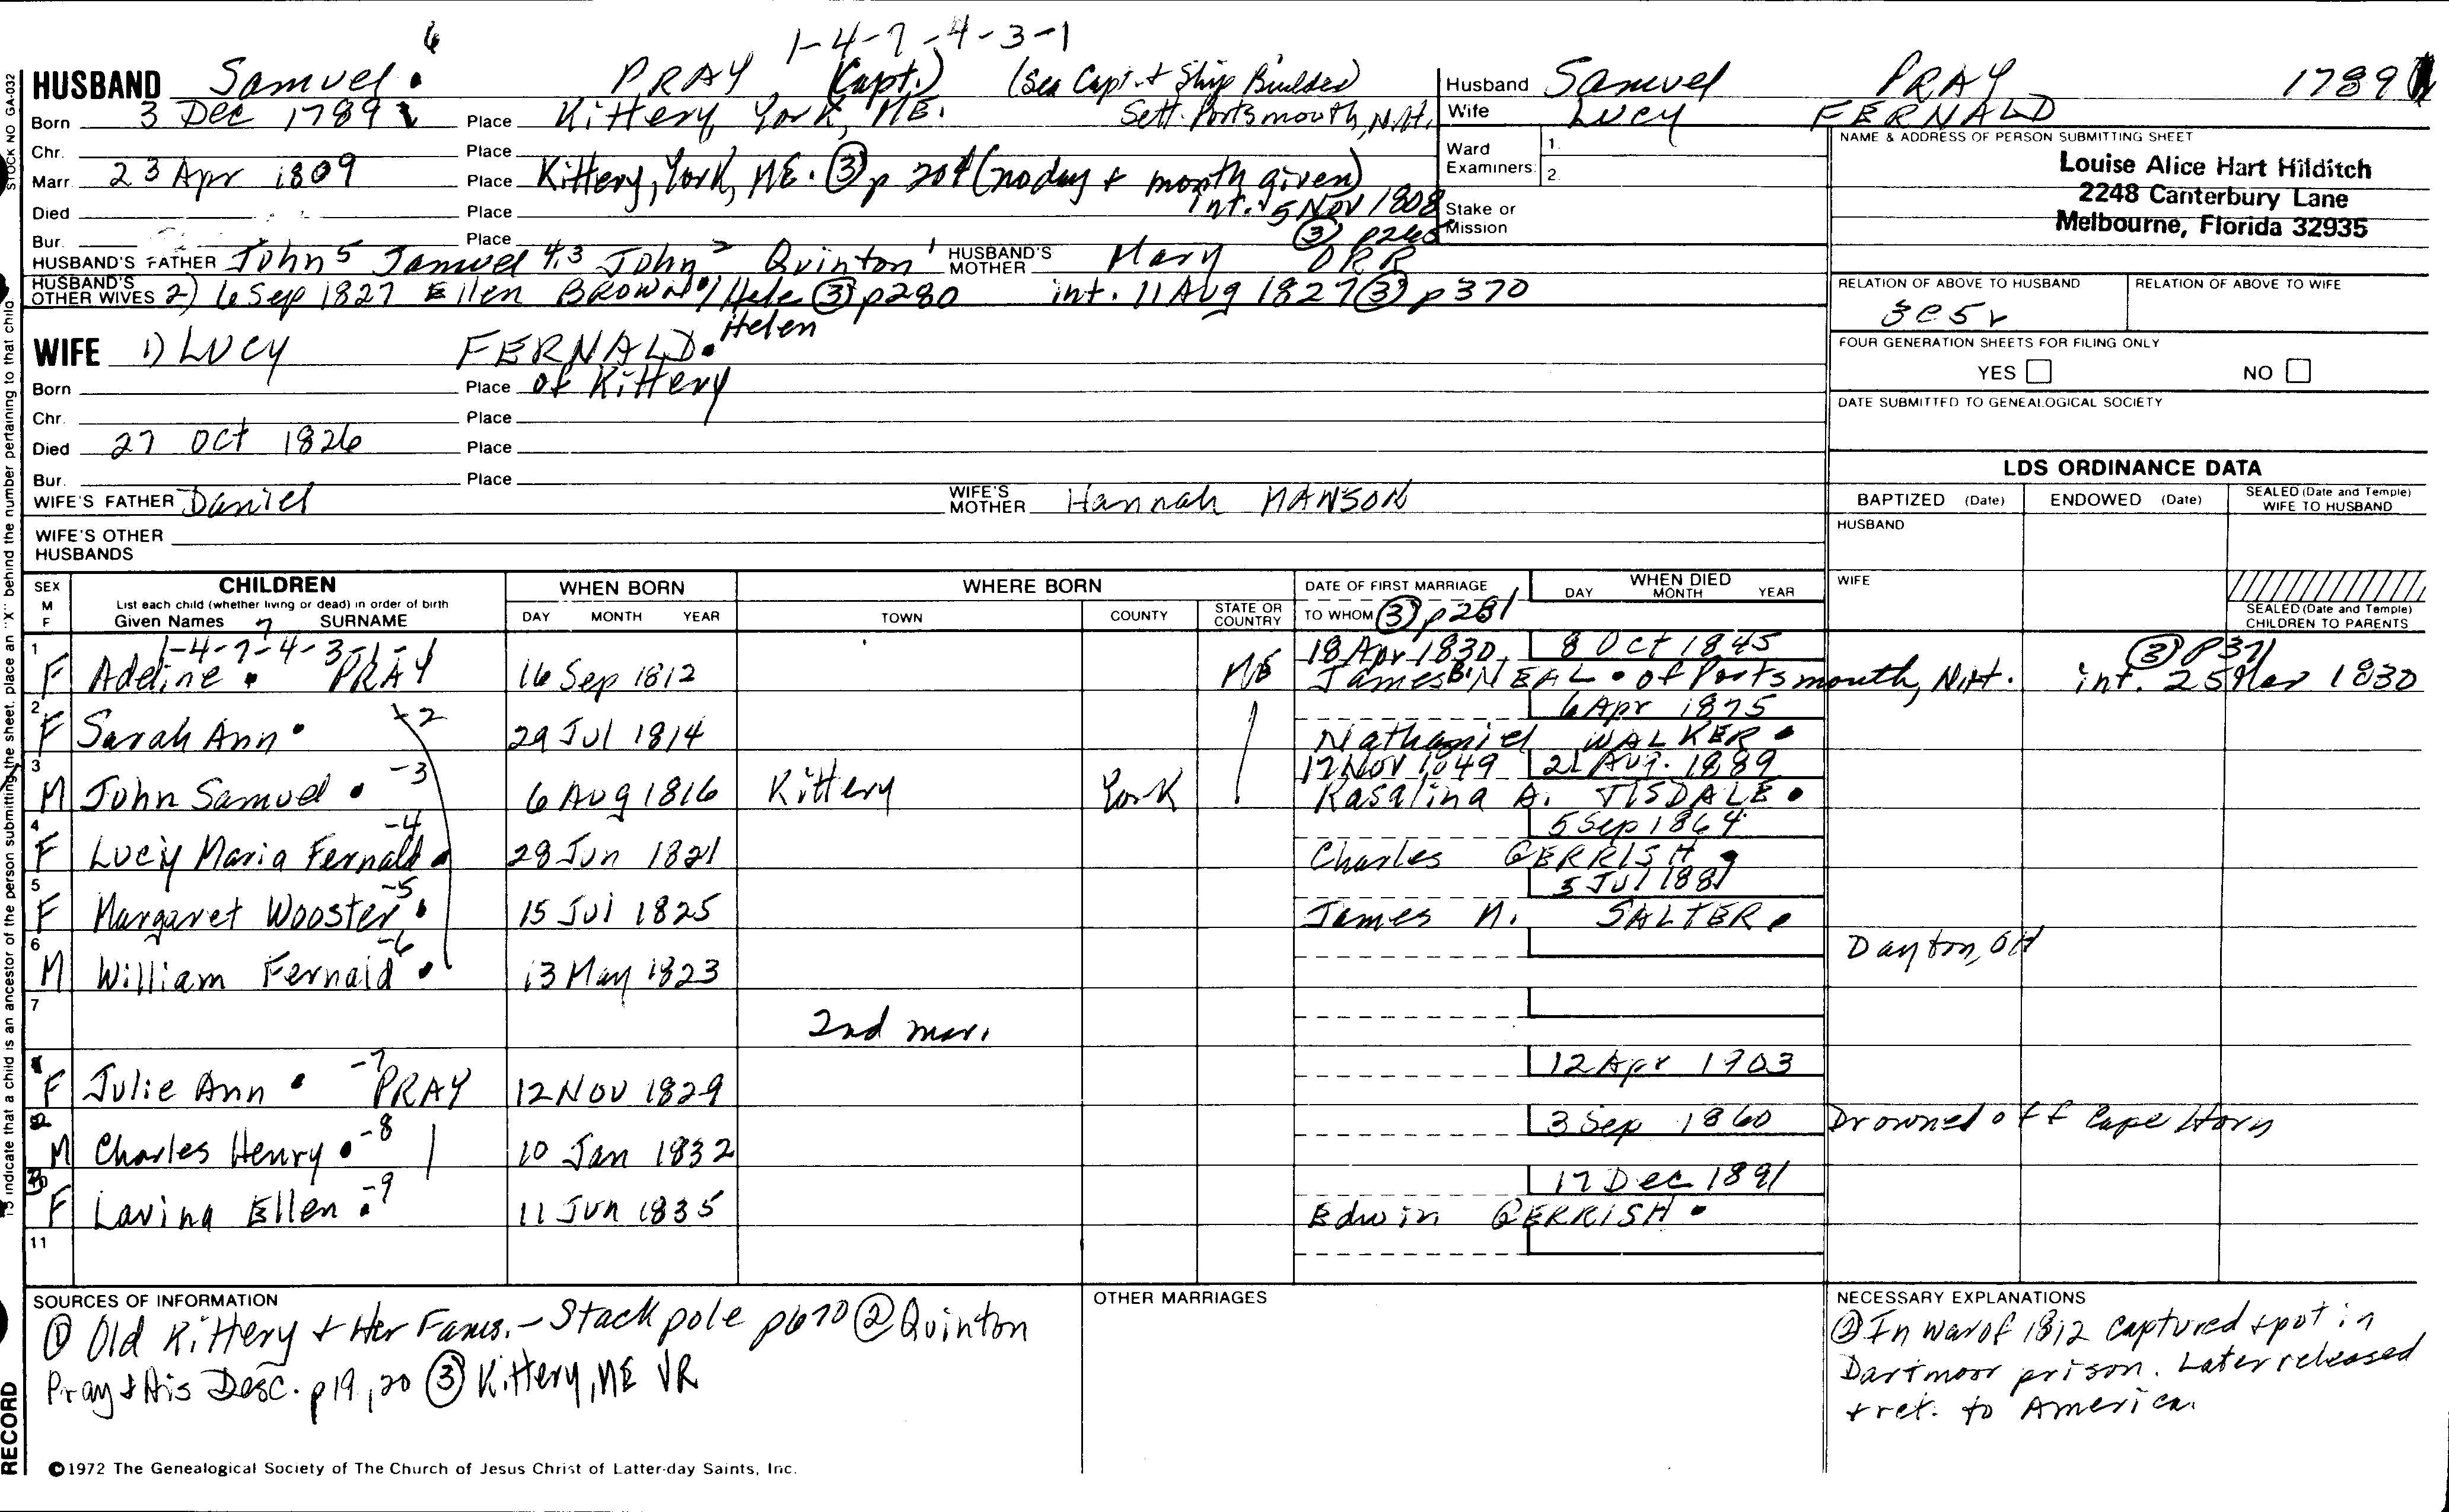 6
1-4-7-4-3-1
HUSBAND Samuel PRAY (Capt.) (Sea Capt. & Ship Builder) Husband Samuel PRAY 1789
Born 3 Dec 1789 Place Kittery York, ME. Sett. Portsmouth, N.H. Wife Lucy FERNALD
Chr. Place Ward Examiners: 1. 2.
Marr. 23 Apr 1809 Place Kittery, York, ME. ③ p 204 (no day & month given)
Died Place int. 5 Nov 1808 Stake or Mission
Bur. Place ③ p
HUSBAND'S FATHER John 5 Samuel 4,3 John 2 Quinton 1 HUSBAND'S MOTHER Mary ORR
HUSBAND'S OTHER WIVES 2) 6 Sep 1827 Ellen BROWN / Hele ③ p280 int. 11 Aug 1827 ③ p370
Helen
NAME & ADDRESS OF PERSON SUBMITTING SHEET
Louise Alice Hart Hilditch
2248 Canterbury Lane
Melbourne, Florida 32935
RELATION OF ABOVE TO HUSBAND RELATION OF ABOVE TO WIFE
3c5r
FOUR GENERATION SHEETS FOR FILING ONLY
YES NO
DATE SUBMITTED TO GENEALOGICAL SOCIETY
WIFE 1) LUCY FERNALD
Born Place of Kittery
Chr. Place
Died 27 Oct 1826 Place
Bur. Place
WIFE'S FATHER Daniel WIFE'S MOTHER Hannah MANSON
WIFE'S OTHER HUSBANDS
LDS ORDINANCE DATA
BAPTIZED (Date) ENDOWED (Date) SEALED (Date and Temple) WIFE TO HUSBAND
HUSBAND
WIFE
SEALED (Date and Temple) CHILDREN TO PARENTS
SEX M F CHILDREN WHEN BORN WHERE BORN DATE OF FIRST MARRIAGE WHEN DIED
List each child (whether living or dead) in order of birth
Given Names 7 SURNAME DAY MONTH YEAR TOWN COUNTY STATE OR COUNTRY TO WHOM ③ p281 DAY MONTH YEAR
1-4-7-4-3-1-1 18 Apr 1830 8 Oct 1845 ③ P371
1 F Adeline PRAY 16 Sep 1812 ME James B. NEAL of Portsmouth, N.H. int. 25 Mar 1830
6 Apr 1875
2 F Sarah Ann -2 29 Jul 1814 Nathaniel WALKER
17 Nov 1849 21 Aug. 1889
3 M John Samuel -3 6 Aug 1816 Kittery York Rasalina A. TISDALE
5 Sep 1864
4 F Lucy Maria Fernald -4 28 Jun 1821 Charles GERRISH
5 Jul 1881
5 F Margaret Wooster -5 15 Jul 1825 James N. SALTER
6 M William Fernald -6 13 May 1823 Dayton, OH
7 2nd mar.
12 Apr 1903
F Julie Ann -7 PRAY 12 Nov 1829
3 Sep 1860 Drowned off Cape Horn
M Charles Henry -8 10 Jan 1832
17 Dec 1891
F Lavina Ellen -9 11 Jun 1835 Edwin GERRISH
11
SOURCES OF INFORMATION
① Old Kittery & Her Fams. - Stackpole p670 ② Quinton
Pray & His Desc. p19, 20 ③ Kittery, ME VR
OTHER MARRIAGES
NECESSARY EXPLANATIONS
② In War of 1812 captured & put in
Dartmoor prison. Later released
& ret. to America.
©1972 The Genealogical Society of The Church of Jesus Christ of Latter-day Saints, Inc.
STOCK NO GA-032
is indicate that a child is an ancestor of the person submitting the sheet, place an "X" behind the number pertaining to that child
RECORD